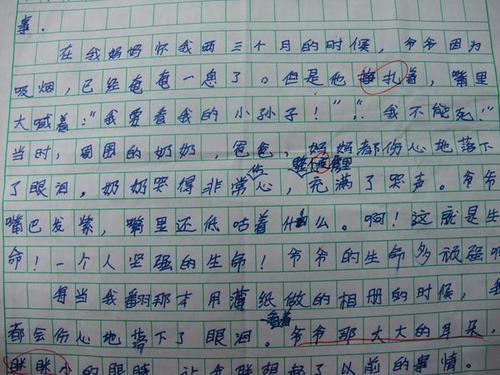 事.
在我妈妈怀我两三个月的时候,爷爷因为
吸烟,已经奄奄一息了。但是他挣扎着,嘴里
大喊着:"我要看我的小孙子!","我不能死."
当时,周围的奶奶,爸爸,妈妈都伤心地落下
了眼泪,奶奶哭得非常伤心,整个房间里充满了哭声。爷爷
嘴巴发紫,嘴里还低咕着什么。啊!这就是生
命!一个人坚强的生命!爷爷的生命多顽强
每当我翻那本用薄纸做的相册的时候,我
都会伤心地落下了眼泪。看着爷爷那大大的耳朵,
眯眯小的眼睛,让我联想起了以前的事情。